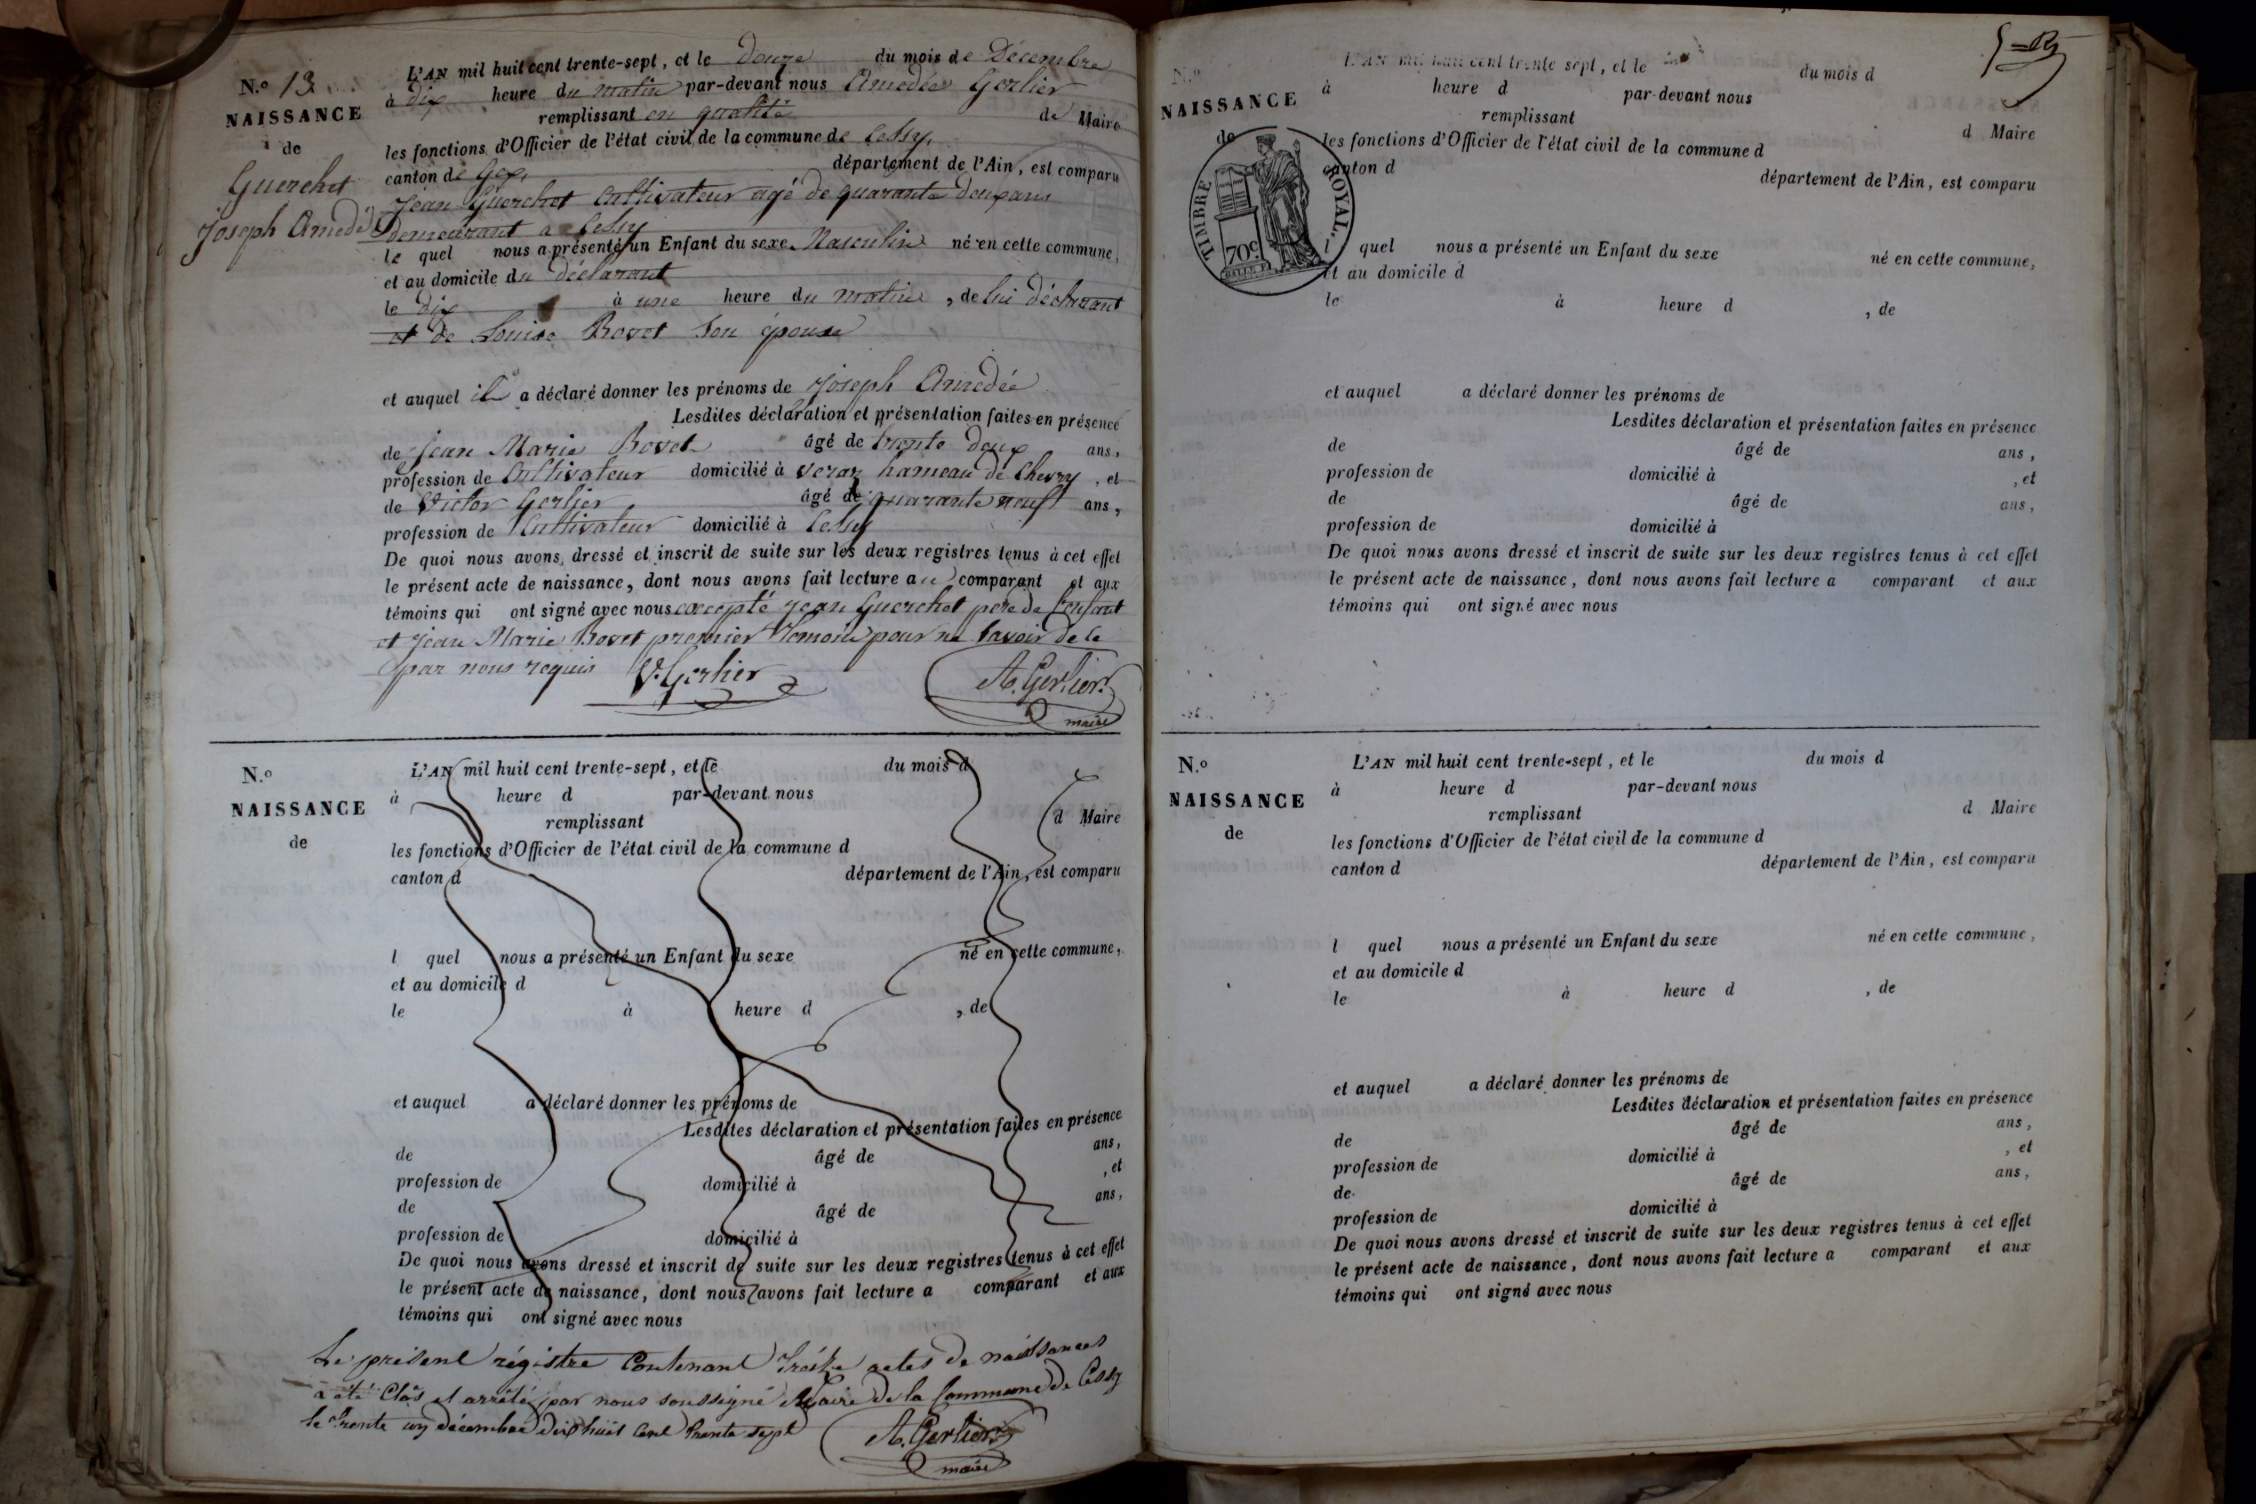 N.o 13
NAISSANCE
de
Guerchet
Joseph Amedé
L'AN mil huit cent trente-sept, et le douze du mois de Décembre
à dix heure du matin par-devant nous Amedée Gerlier
remplissant en qualité de Maire
les fonctions d'Officier de l'état civil de la commune de Cessy,
canton de Gex, département de l'Ain, est comparu
Jean Guerchet Cultivateur agé de quarante deux ans
demeurant a Cessy
le quel nous a présenté un Enfant du sexe Masculin né en cette commune,
et au domicile du déclarant
le dix à une heure du matin, de lui déclarant
et de Louise Bovet son épouse
et auquel il a déclaré donner les prénoms de Joseph Amedée
Lesdites déclaration et présentation faites en présence
de Jean Marie Bovet âgé de trente deux ans,
profession de Cultivateur domicilié à Veraz hameau de Chevry, et
de Victor Gerlier âgé de quarante neuf ans,
profession de Cultivateur domicilié à Cessy
De quoi nous avons dressé et inscrit de suite sur les deux registres tenus à cet effet
le présent acte de naissance, dont nous avons fait lecture au comparant et aux
témoins qui ont signé avec nous excepté Jean Guerchet père de l'enfant
et Jean Marie Bovet premier temoin pour ne savoir de ce
par nous requis V. Gerlier A. Gerlier
maire
N.o
NAISSANCE
de
L'AN mil huit cent trente-sept, et le du mois d
à heure d par-devant nous
remplissant d Maire
les fonctions d'Officier de l'état civil de la commune d
canton d département de l'Ain, est comparu
l quel nous a présenté un Enfant du sexe né en cette commune,
et au domicile d
le à heure d , de
et auquel a déclaré donner les prénoms de
Lesdites déclaration et présentation faites en présence
de âgé de ans,
profession de domicilié à , et
de âgé de ans,
profession de domicilié à
De quoi nous avons dressé et inscrit de suite sur les deux registres tenus à cet effet
le présent acte de naissance, dont nous avons fait lecture a comparant et aux
témoins qui ont signé avec nous
Le présent régistre Contenant Treize actes de naissances
a été Clos et arrêté par nous soussigné Maire de la Commune de Cessy
le trente un décembre dix huit cent trente sept A. Gerlier
maire
N.o
NAISSANCE
de
TIMBRE ROYAL.
70c.
L'AN mil huit cent trente sept, et le du mois d
à heure d par-devant nous
remplissant d Maire
les fonctions d'Officier de l'état civil de la commune d
canton d département de l'Ain, est comparu
l quel nous a présenté un Enfant du sexe né en cette commune,
et au domicile d
le à heure d , de
et auquel a déclaré donner les prénoms de
Lesdites déclaration et présentation faites en présence
de âgé de ans,
profession de domicilié à , et
de âgé de ans,
profession de domicilié à
De quoi nous avons dressé et inscrit de suite sur les deux registres tenus à cet effet
le présent acte de naissance, dont nous avons fait lecture a comparant et aux
témoins qui ont signé avec nous
N.o
NAISSANCE
de
L'AN mil huit cent trente-sept, et le du mois d
à heure d par-devant nous
remplissant d Maire
les fonctions d'Officier de l'état civil de la commune d
canton d département de l'Ain, est comparu
l quel nous a présenté un Enfant du sexe né en cette commune,
et au domicile d
le à heure d , de
et auquel a déclaré donner les prénoms de
Lesdites déclaration et présentation faites en présence
de âgé de ans,
profession de domicilié à , et
de âgé de ans,
profession de domicilié à
De quoi nous avons dressé et inscrit de suite sur les deux registres tenus à cet effet
le présent acte de naissance, dont nous avons fait lecture a comparant et aux
témoins qui ont signé avec nous